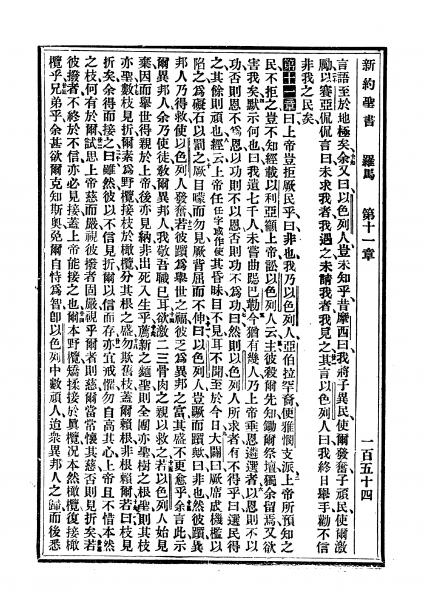 新約聖書 羅馬 第十一章 一百五十四
言語至於地極矣余又曰以色列人豈未知乎昔摩西曰我將子異民使爾發奮子頑民使爾激
勵以賽亞侃侃言曰未求我者我遇之未請我者我見之其言以色列人曰我終日舉手勸不信
非我之民矣
第十一章曰上帝豈拒厥民乎曰非也我乃以色列人亞伯拉罕裔便雅憫支派上帝所預知之
民不拒之豈不知經載以利亞籲上帝訟以色列人云主彼殺爾先知鋤爾祭壇獨余留焉又欲
害我矣默示何也曰我遺七千人未嘗曲膝巴勒今猶有幾人乃上帝垂恩遴選者以恩則不以
功否則恩不爲恩以功則不以恩否則功不爲功曰然則以色列人所求者有不得乎曰選民得
之其餘則頑也經云上帝任任字或作使其昏昧目不見耳不聞至於今日大闢曰厥席成機檻以
陷之爲礙石以罰之厥目矇而勿見厥背屈而不伸曰以色列人豈蹶而躓歟曰非也然彼躓異
邦人乃得救使以色列人發奮若彼躓爲舉世之福彼乏爲異邦之富其盛不更愈乎余言此示
爾異邦人余乃使徒敎爾異邦人我敬吾職曰耳欲激二三骨肉之親以救之若以色列人始見
棄因而舉世得親於上帝後亦見納非出死入生乎薦新之麵聖則全團亦聖樹之根聖則其枝
亦聖數枝見折爾素爲野欖接枝於橄欖分其根之盛勿欺舊枝蓋爾賴根非根賴爾若曰枝見
折矣余得而接之曰雖然彼以不信見折爾以信而存亦宜戒懼勿自高其心上帝且不惜本然
之枝何有於爾試思上帝慈而嚴視彼撥者固嚴視乎爾者則慈爾當常懷其慈否則見折矣若
彼撥者不終於不信亦必見接蓋上帝能接之也爾本野欖矯揉接於眞欖況本然橄欖復接橄
欖乎兄弟乎余甚欲爾克知斯奧免爾自恃爲智卽以色列中數頑人迨衆異邦人之歸而後悉